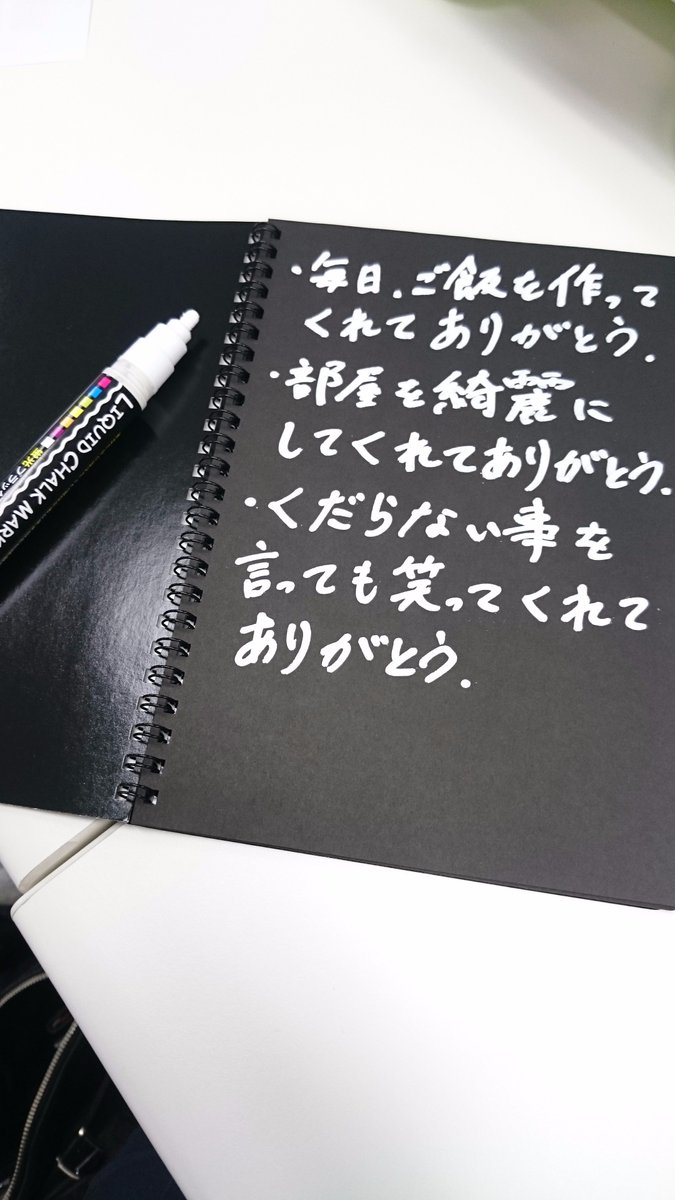 ・毎日、ご飯を作って
くれてありがとう.
・部屋を綺麗に
してくれてありがとう.
・くだらない事を
言っても笑ってくれて
ありがとう.
LIQUID CHALK MARK